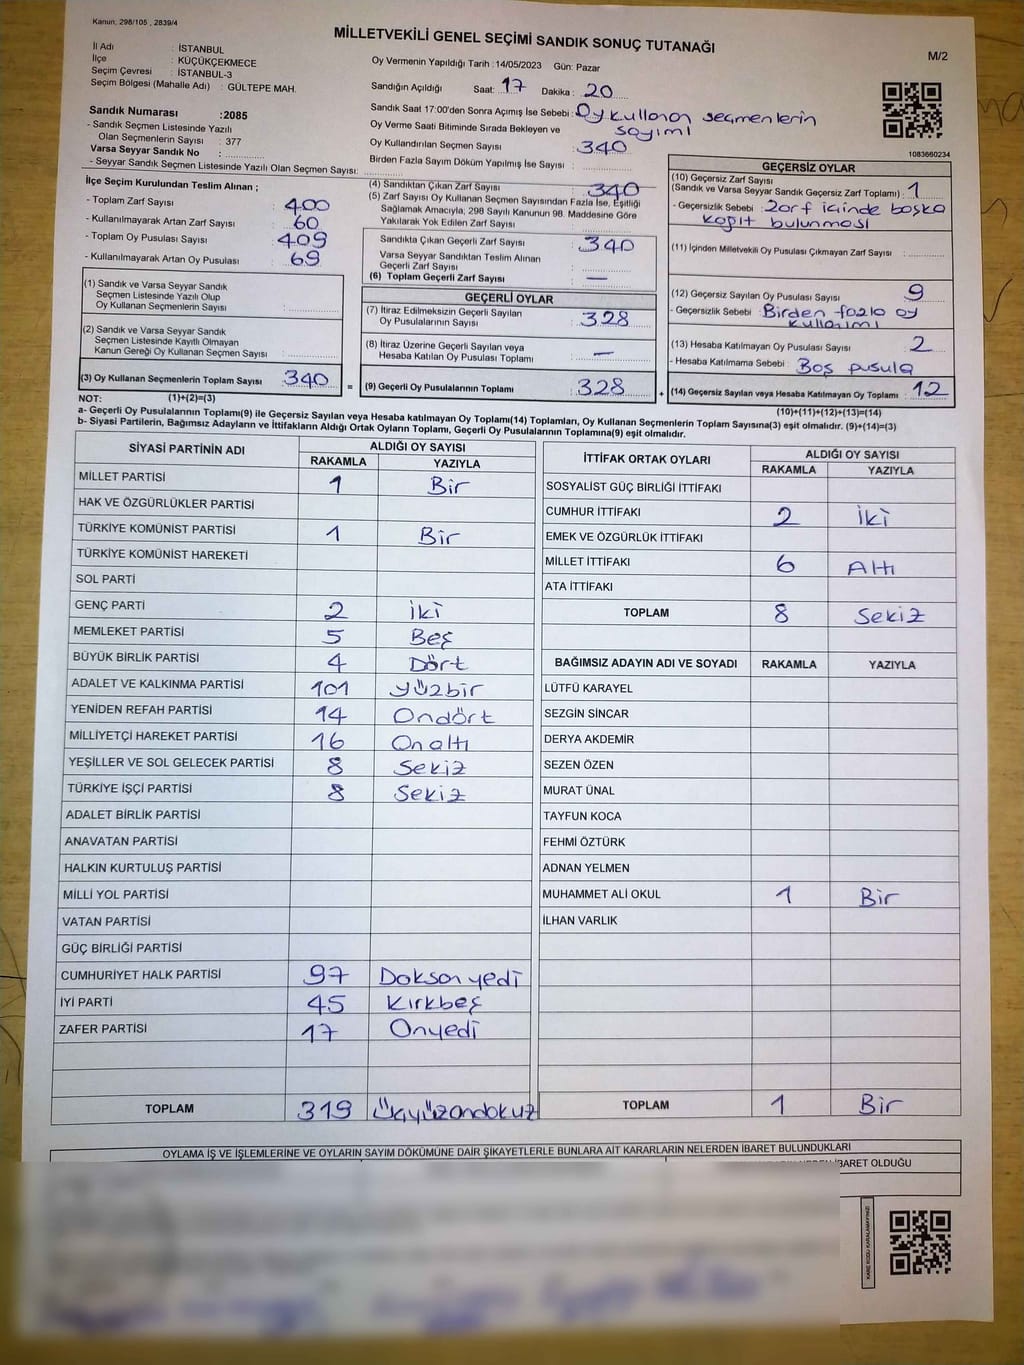 Kanun: 298/105 , 2839/4
MİLLETVEKİLİ GENEL SEÇİMİ SANDIK SONUÇ TUTANAĞI
M/2
İl Adı : İSTANBUL
İlçe : KÜÇÜKÇEKMECE
Seçim Çevresi : İSTANBUL-3
Seçim Bölgesi (Mahalle Adı) : GÜLTEPE MAH.
Oy Vermenin Yapıldığı Tarih :14/05/2023 Gün: Pazar
Sandığın Açıldığı Saat: 17 Dakika : 20
Sandık Saat 17:00'den Sonra Açımış İse Sebebi : Oy kullanan seçmenlerin
sayımı
Oy Verme Saati Bitiminde Sırada Bekleyen ve
Oy Kullandırılan Seçmen Sayısı : 340
Birden Fazla Sayım Döküm Yapılmış İse Sayısı :
Sandık Numarası :2085
- Sandık Seçmen Listesinde Yazılı
Olan Seçmenlerin Sayısı : 377
Varsa Seyyar Sandık No :
- Seyyar Sandık Seçmen Listesinde Yazılı Olan Seçmen Sayısı:
1083660234
İlçe Seçim Kurulundan Teslim Alınan ;
- Toplam Zarf Sayısı : 400
- Kullanılmayarak Artan Zarf Sayısı : 60
- Toplam Oy Pusulası Sayısı : 409
- Kullanılmayarak Artan Oy Pusulası : 69
(1) Sandık ve Varsa Seyyar Sandık
Seçmen Listesinde Yazılı Olup
Oy Kullanan Seçmenlerin Sayısı :
(2) Sandık ve Varsa Seyyar Sandık
Seçmen Listesinde Kayıtlı Olmayan
Kanun Gereği Oy Kullanan Seçmen Sayısı :
(3) Oy Kullanan Seçmenlerin Toplam Sayısı : 340 =
(1)+(2)=(3)
(4) Sandıktan Çıkan Zarf Sayısı : 340
(5) Zarf Sayısı Oy Kullanan Seçmen Sayısından Fazla İse, Eşitliği
Sağlamak Amacıyla, 298 Sayılı Kanunun 98. Maddesine Göre
Yakılarak Yok Edilen Zarf Sayısı :
Sandıkta Çıkan Geçerli Zarf Sayısı : 340
Varsa Seyyar Sandıktan Teslim Alınan
Geçerli Zarf Sayısı :
(6) Toplam Geçerli Zarf Sayısı : —
GEÇERLİ OYLAR
(7) İtiraz Edilmeksizin Geçerli Sayılan
Oy Pusulalarının Sayısı : 328
(8) İtiraz Üzerine Geçerli Sayılan veya
Hesaba Katılan Oy Pusulası Toplamı : —
(9) Geçerli Oy Pusulalarının Toplamı : 328 +
GEÇERSİZ OYLAR
(10) Geçersiz Zarf Sayısı
(Sandık ve Varsa Seyyar Sandık Geçersiz Zarf Toplamı) : 1
- Geçersizlik Sebebi : Zarf içinde başka
kağıt bulunması
(11) İçinden Milletvekili Oy Pusulası Çıkmayan Zarf Sayısı :
(12) Geçersiz Sayılan Oy Pusulası Sayısı : 9
- Geçersizlik Sebebi : Birden fazla oy
kullanımı
(13) Hesaba Katılmayan Oy Pusulası Sayısı : 2
- Hesaba Katılmama Sebebi : Boş pusula
(14) Geçersiz Sayılan veya Hesaba Katılmayan Oy Toplamı : 12
(10)+(11)+(12)+(13)=(14)
NOT:
a- Geçerli Oy Pusulalarının Toplamı(9) ile Geçersiz Sayılan veya Hesaba katılmayan Oy Toplamı(14) Toplamları, Oy Kullanan Seçmenlerin Toplam Sayısına(3) eşit olmalıdır. (9)+(14)=(3)
b- Siyasi Partilerin, Bağımsız Adayların ve İttifakların Aldığı Ortak Oyların Toplamı, Geçerli Oy Pusulalarının Toplamına(9) eşit olmalıdır.
SİYASİ PARTİNİN ADI ALDIĞI OY SAYISI
RAKAMLA YAZIYLA
MİLLET PARTİSİ 1 Bir
HAK VE ÖZGÜRLÜKLER PARTİSİ
TÜRKİYE KOMÜNİST PARTİSİ 1 Bir
TÜRKİYE KOMÜNİST HAREKETİ
SOL PARTİ
GENÇ PARTİ 2 İki
MEMLEKET PARTİSİ 5 Beş
BÜYÜK BİRLİK PARTİSİ 4 Dört
ADALET VE KALKINMA PARTİSİ 101 yüzbir
YENİDEN REFAH PARTİSİ 14 Ondört
MİLLİYETÇİ HAREKET PARTİSİ 16 Onaltı
YEŞİLLER VE SOL GELECEK PARTİSİ 8 Sekiz
TÜRKİYE İŞÇİ PARTİSİ 8 Sekiz
ADALET BİRLİK PARTİSİ
ANAVATAN PARTİSİ
HALKIN KURTULUŞ PARTİSİ
MİLLİ YOL PARTİSİ
VATAN PARTİSİ
GÜÇ BİRLİĞİ PARTİSİ
CUMHURİYET HALK PARTİSİ 97 Doksanyedi
İYİ PARTİ 45 Kırkbeş
ZAFER PARTİSİ 17 Onyedi
TOPLAM 319 Üçyüzondokuz
İTTİFAK ORTAK OYLARI ALDIĞI OY SAYISI
RAKAMLA YAZIYLA
SOSYALİST GÜÇ BİRLİĞİ İTTİFAKI
CUMHUR İTTİFAKI 2 İki
EMEK VE ÖZGÜRLÜK İTTİFAKI
MİLLET İTTİFAKI 6 Altı
ATA İTTİFAKI
TOPLAM 8 Sekiz
BAĞIMSIZ ADAYIN ADI VE SOYADI RAKAMLA YAZIYLA
LÜTFÜ KARAYEL
SEZGİN SİNCAR
DERYA AKDEMİR
SEZEN ÖZEN
MURAT ÜNAL
TAYFUN KOCA
FEHMİ ÖZTÜRK
ADNAN YELMEN
MUHAMMET ALİ OKUL 1 Bir
İLHAN VARLIK
TOPLAM 1 Bir
OYLAMA İŞ VE İŞLEMLERİNE VE OYLARIN SAYIM DÖKÜMÜNE DAİR ŞİKAYETLERLE BUNLARA AİT KARARLARIN NELERDEN İBARET BULUNDUKLARI
İBARET OLDUĞU
KARE KODU KARALAMAYINIZ